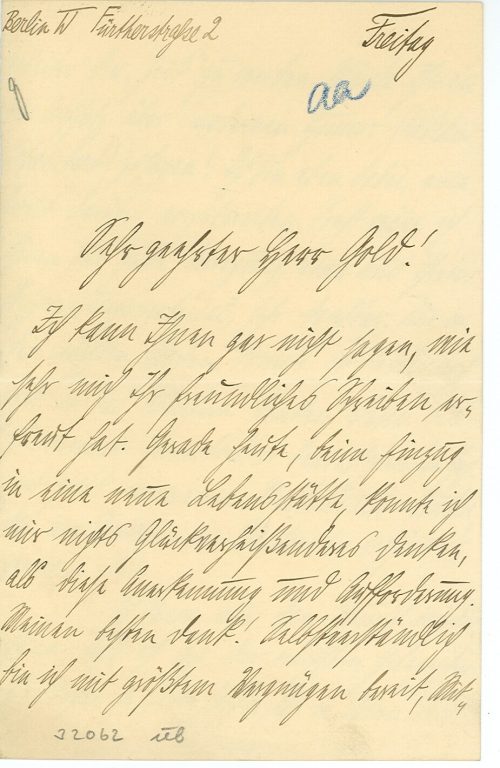 Berlin W Fürtherstraße 2
Freitag
aa
Sehr geehrter Herr Gold!
Ich kann Ihnen gar nicht sagen, wie
sehr mich Ihr freundliches Schreiben er-
freut hat. Gerade heute, beim Einzug
in eine neue Lebensstätte, konnte ich
mir nichts Glückverheißenderes denken,
als diese Anerkennung und Aufforderung.
Meinen besten Dank! Selbstverständlich
bin ich mit größtem Vergnügen bereit,
32062 üb